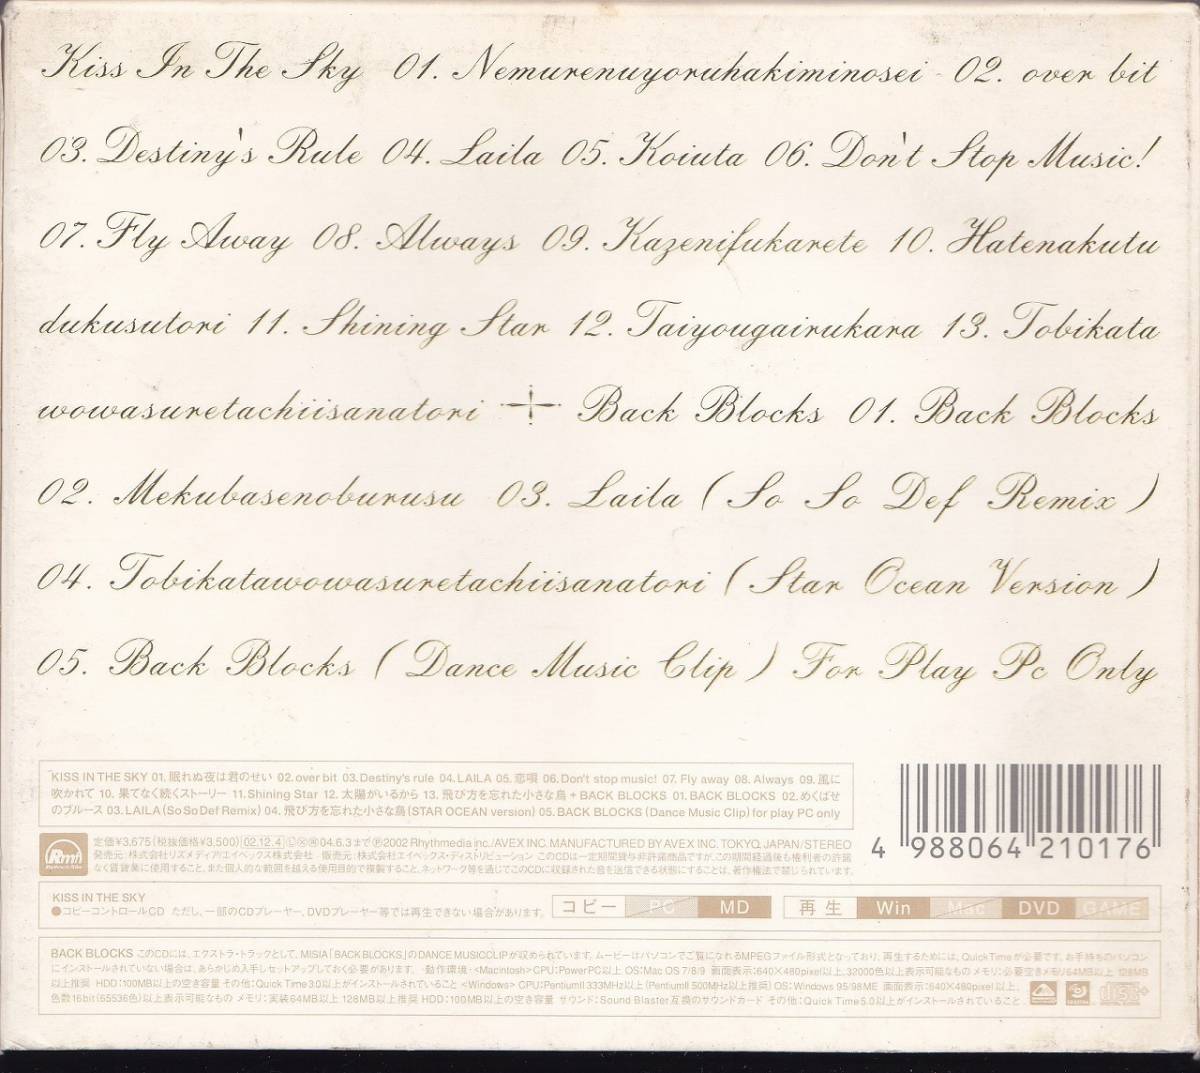 Kiss In The Sky 01. Nemurenuyoruhakiminosei 02. over bit
03. Destiny's Rule 04. Laila 05. Koiuta 06. Don't Stop Music!
07. Fly Away 08. Always 09. Kazenifukarete 10. Hatenakutu
dukusutori 11. Shining Star 12. Taiyougairukara 13. Tobikata
wowasuretachiisanatori + Back Blocks 01. Back Blocks
02. Mekubasenoburusu 03. Laila (So So Def Remix)
04. Tobikatawowasuretachiisanatori (Star Ocean Version)
05. Back Blocks (Dance Music Clip) For Play Pc Only
KISS IN THE SKY 01.眠れぬ夜は君のせい 02.over bit 03.Destiny's rule 04.LAILA 05.恋唄 06.Don't stop music! 07.Fly away 08.Always 09.風に
吹かれて 10.果てなく続くストーリー 11.Shining Star 12.太陽がいるから 13.飛び方を忘れた小さな鳥 + BACK BLOCKS 01.BACK BLOCKS 02.めくばせ
のブルース 03.LAILA (So So Def Remix) 04.飛び方を忘れた小さな鳥(STAR OCEAN version) 05.BACK BLOCKS (Dance Music Clip) for play PC only
Rmi
定価¥3,675(税抜価格¥3,500) 02.12.4 04.6.3まで Ⓟ2002 Rhythmedia inc./AVEX INC. MANUFACTURED BY AVEX INC. TOKYO, JAPAN/STEREO
発売元:株式会社リズメディア/エイベックス株式会社 ・販売元:株式会社エイベックス・ディストリビューション このCDは一定期間貸与非許諾商品ですが、この期間経過後も権利者の許諾
なく賃貸業に使用すること、また個人的な範囲を越える使用目的で複製すること、ネットワーク等を通じてこのCDに収録された音を送信できる状態にすることは、著作権法で禁じられています。
4 988064 210176
KISS IN THE SKY
●コピーコントロールCD ただし、一部のCDプレーヤー、DVDプレーヤー等では再生できない場合があります。
コピー PC MD 再生 Win Mac DVD GAME
BACK BLOCKS このCDには、エクストラ・トラックとして、MISIA「BACK BLOCKS」のDANCE MUSICCLIPが収められています。ムービーはパソコンでご覧になれるMPEGファイル形式となっており、再生するためには、Quick Timeが必要です。お手持ちのパソコン
にインストールされていない場合は、あらかじめ入手しセットアップしておく必要があります。 ・動作環境・<Macintosh>CPU:PowerPC以上 OS:Mac OS 7/8/9 画面表示:640×480pixel以上、32000色以上表示可能なもの メモリ:必要空きメモリ64MB以上 128MB
以上推奨 HDD:100MB以上の空き容量 その他:Quick Time3.0以上がインストールされていること <Windows> CPU:PentiumII 333MHz以上(PentiumII 500MHz以上推奨) OS:Windows 95/98/ME 画面表示:640×480pixel以上、
色数16bit(65536色)以上表示可能なもの メモリ:実装64MB以上 128MB以上推奨 HDD:100MB以上の空き容量 サウンド:Sound Blaster互換のサウンドカード その他:Quick Time5.0以上がインストールされていること。